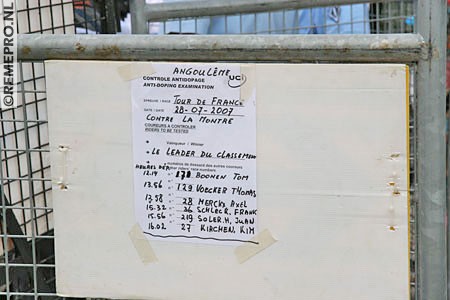 ANGOULÊME
uci
CONTROLE ANTIDOPAGE
ANTI-DOPING EXAMINATION
EPREUVE / RACE TOUR DE FRANCE
DATE / DATE 28-07-2007
CONTRE LA MONTRE
COUREURS A CONTROLER
RIDERS TO BE TESTED
Vainqueur / Winner
- LE LEADER DU CLASSEMENT
numéros de dossard des autres coureurs
HEURES DEP
12.14 - 178 BOONEN TOM
13.56 - 129 VOECKER THOMAS
13.58 - 28 MERCKX AXEL
15.32 - 26 SCHLECK, FRANK
15.56 - 219 SOLER.H, JUAN
16.02 27 KIRCHEN, KIM
©REMEPRO.NL